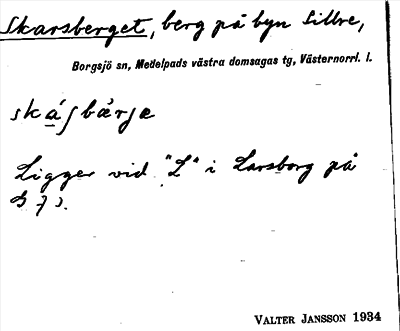 Skarsberget, berg på byn Sillre,
Borgsjö sn, Medelpads västra domsagas tg, Västernorrl. l.
skáʃbærjæ
Ligger vid "L" i Larsborg på
VALTER JANSSON 1934